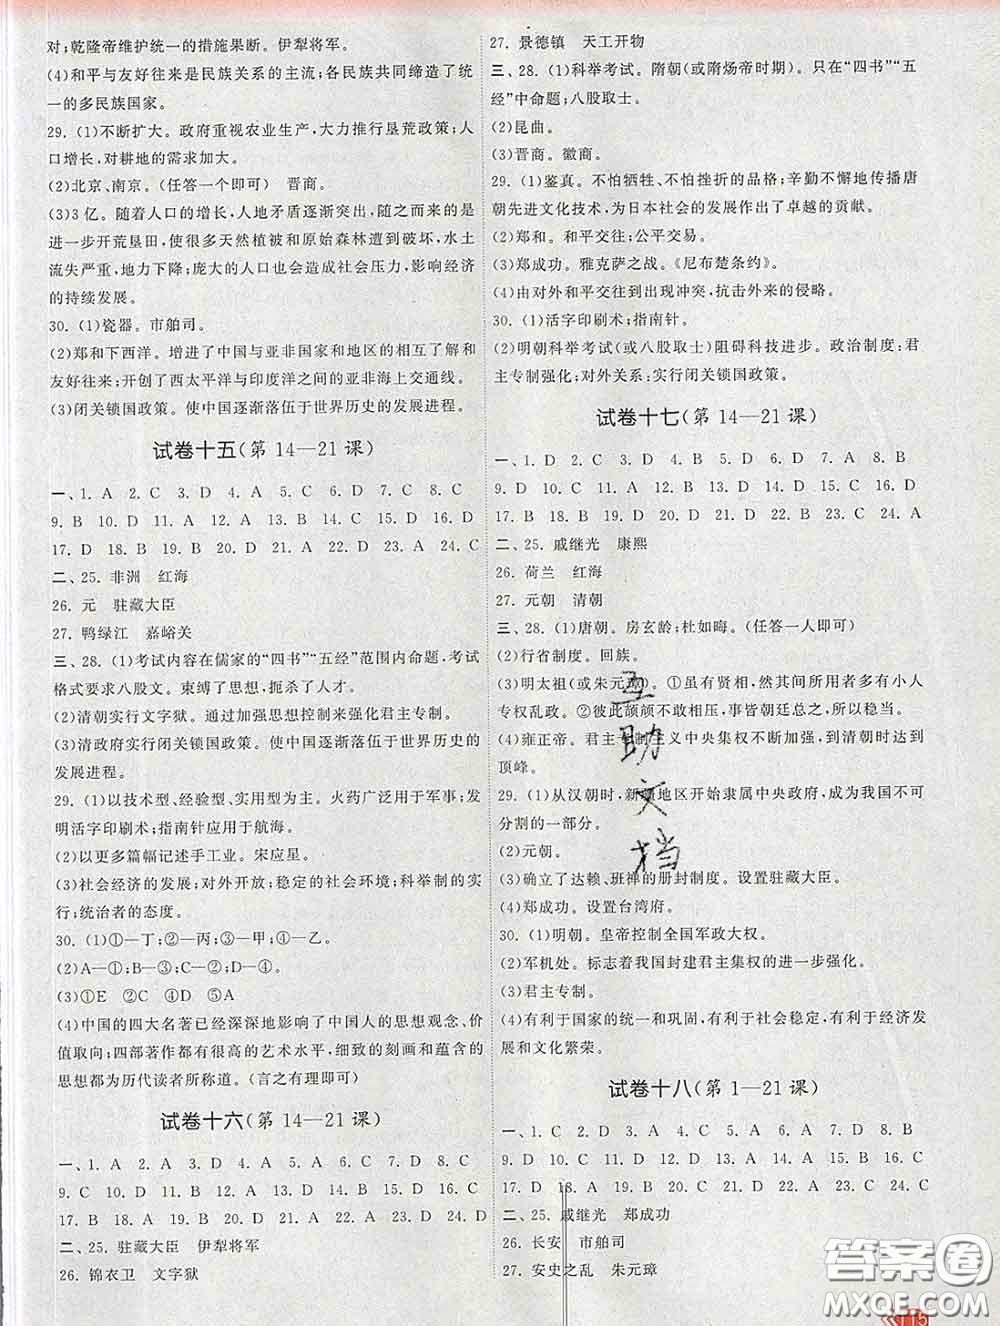 对;乾隆帝维护统一的措施果断。伊犁将军。
(4)和平与友好往来是民族关系的主流;各民族共同缔造了统
一的多民族国家。
29. (1)不断扩大。政府重视农业生产,大力推行垦荒政策;人
口增长,对耕地的需求加大。
(2)北京、南京。(任答一个即可) 晋商。
(3)3 亿。随着人口的增长,人地矛盾逐渐突出,随之而来的是
进一步开荒垦田,使很多天然植被和原始森林遭到破坏,水土
流失严重,地力下降;庞大的人口会造成社会压力,影响经济
的持续发展。
30. (1)瓷器。市舶司。
(2)郑和下西洋。增进了中国与亚非国家和地区的相互了解和
友好往来;开创了西太平洋与印度洋之间的亚非海上交通线。
(3)闭关锁国政策。使中国逐渐落伍于世界历史的发展进程。
试卷十五(第 14—21 课)
一、1. A 2. C 3. D 4. A 5. C 6. D 7. C 8. C
9. B 10. D 11. B 12. A 13. C 14. D 15. C 16. D
17. D 18. B 19. B 20. A 21. D 22. D 23. A 24. C
二、25. 非洲 红海
26. 元 驻藏大臣
27. 鸭绿江 嘉峪关
三、28. (1)考试内容在儒家的“四书”“五经”范围内命题,考试
格式要求八股文。束缚了思想,扼杀了人才。
(2)清朝实行文字狱。通过加强思想控制来强化君主专制。
(3)清政府实行闭关锁国政策。使中国逐渐落伍于世界历史的
发展进程。
29. (1)以技术型、经验型、实用型为主。火药广泛用于军事;发
明活字印刷术;指南针应用于航海。
(2)以更多篇幅记述手工业。宋应星。
(3)社会经济的发展;对外开放;稳定的社会环境;科举制的实
行;统治者的态度。
30. (1)①—丁;②—丙;③—甲;④—乙。
(2)A—①;B—②;C—③;D—④。
(3)①E ②C ③B ④D ⑤A
(4)中国的四大名著已经深深地影响了中国人的思想观念、价
值取向;四部著作都有很高的艺术水平,细致的刻画和蕴含的
思想都为历代读者所称道。(言之有理即可)
试卷十六(第 14—21 课)
一、1. A 2. A 3. D 4. A 5. C 6. D 7. C 8. C
9. C 10. C 11. B 12. A 13. A 14. D 15. D 16. C
17. B 18. A 19. A 20. C 21. A 22. C 23. D 24. D
二、25. 驻藏大臣 伊犁将军
26. 锦衣卫 文字狱
27. 景德镇 天工开物
三、28. (1)科举考试。隋朝(或隋炀帝时期)。只在“四书”“五
经”中命题;八股取士。
(2)昆曲。
(3)晋商。徽商。
29. (1)鉴真。不怕牺牲、不怕挫折的品格;辛勤不懈地传播唐
朝先进文化技术,为日本社会的发展作出了卓越的贡献。
(2)郑和。和平交往;公平交易。
(3)郑成功。雅克萨之战。《尼布楚条约》。
(4)由对外和平交往到出现冲突,抗击外来的侵略。
30. (1)活字印刷术;指南针。
(2)明朝科举考试(或八股取士)阻碍科技进步。政治制度:君
主专制强化;对外关系:实行闭关锁国政策。
试卷十七(第 14—21 课)
一、1. D 2. C 3. B 4. C 5. D 6. C 7. A 8. B
9. D 10. C 11. A 12. C 13. D 14. C 15. A 16. C
17. B 18. A 19. D 20. B 21. C 22. C 23. A 24. A
二、25. 戚继光 康熙
26. 荷兰 红海
27. 元朝 清朝
三、28. (1)唐朝。房玄龄;杜如晦。(任答一人即可)
(2)行省制度。回族。
(3)明太祖(或朱元璋)。①虽有贤相,然其间所用者多有小人
专权乱政。②彼此颉颃不敢相压,事皆朝廷总之,所以稳当。
(4)雍正帝。君主专制主义中央集权不断加强,到清朝时达到
顶峰。
29. (1)从汉朝时,新疆地区开始隶属中央政府,成为我国不可
分割的一部分。
(2)元朝。
(3)确立了达赖、班禅的册封制度。设置驻藏大臣。
(4)郑成功。设置台湾府。
30. (1)明朝。皇帝控制全国军政大权。
(2)军机处。标志着我国封建君主集权的进一步强化。
(3)君主专制。
(4)有利于国家的统一和巩固,有利于社会稳定,有利于经济发
展和文化繁荣。
试卷十八(第 1—21 课)
一、1. C 2. D 3. D 4. B 5. A 6. C 7. D 8. B
9. D 10. D 11. B 12. A 13. C 14. B 15. D 16. B
17. D 18. A 19. A 20. C 21. D 22. C 23. A 24. C
二、25. 戚继光 郑成功
26. 长安 市舶司
27. 安史之乱 朱元璋
互助文档
答案圈
MXQE.COM
115